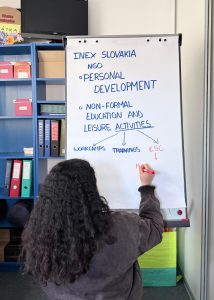 INEX SLOVAKIA
NGO
PERSONAL
DEVELOPMENT
NON-FORMAL
EDUCATION AND
LEISURE ACTIVITIES
WORKCAMPS TRAININGS ESC